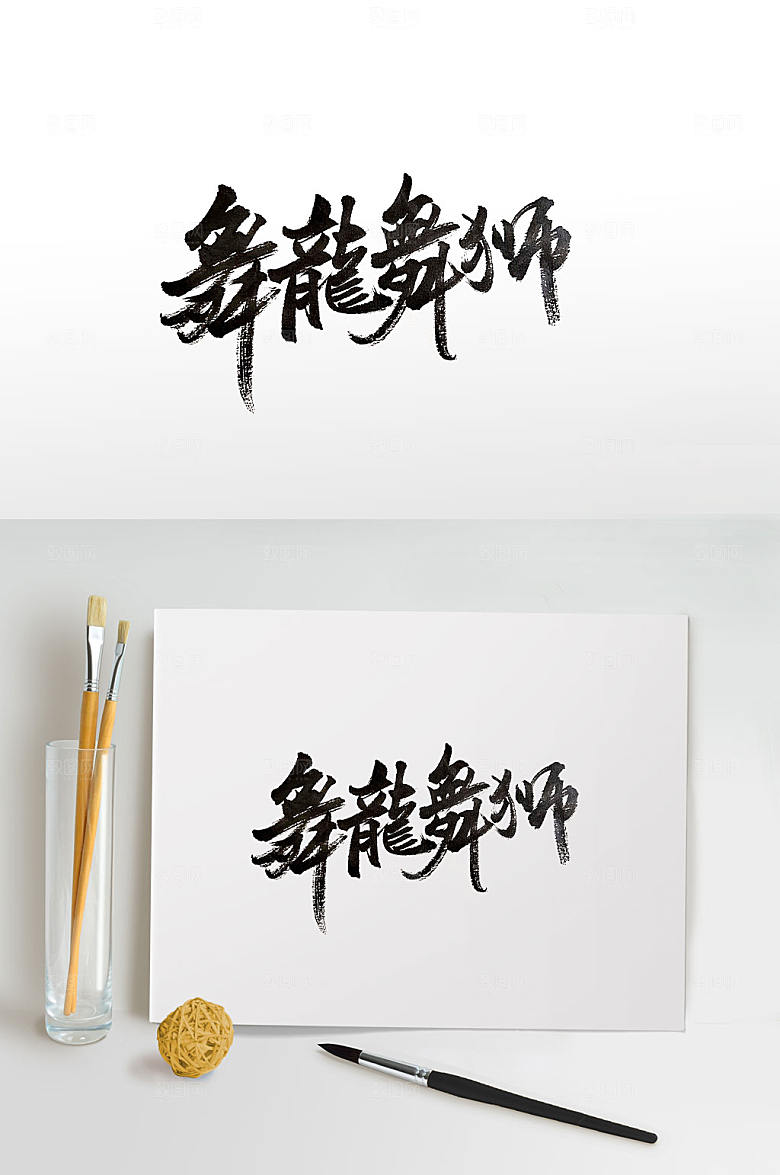 舞龍舞狮
舞龍舞狮